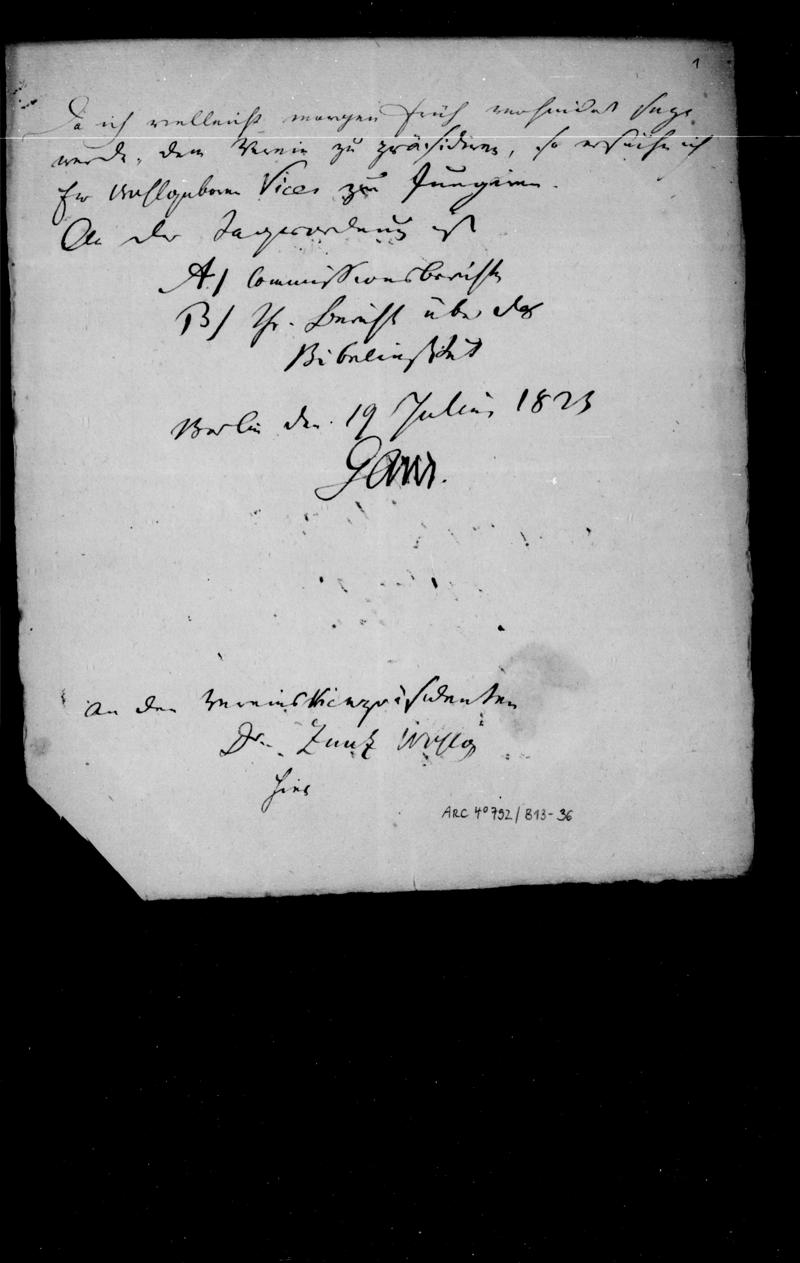 1
Da ich vielleicht morgen früh verhindert seyn
werde, dem Verein zu präsidiren, so ersuche ich
Ew Wohlgeboren Vices zu fungiren.
An der Tagesordnung ist
A) Commissionsbericht
B) Ihr Bericht über das
Bibelinstitut
Berlin den 19 Julius 1823
Gans.
An den Vereins Vicepräsidenten
Dr. Zunz Wohlg
hier
ARC 4° 792 / B13-36